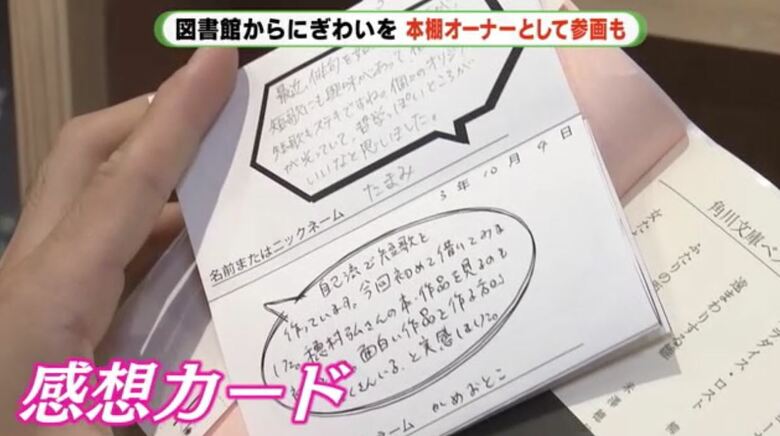 図書館からにぎわいを 本棚オーナーとして参画も
最近、俳句を
短歌にも興味があって
短歌もステキですね。個々のオリジ
が光っていて、哲学っぽいところが
いいなと思いました。
たまみ
名前またはニックネーム
3年10月9日
自己流で短歌を
作っています。今回初めて借りてみま
した。穂村弘さんの本・作品を見るのも
面白い作品を作る方が
いる。と実感しました。
ーム かめおとこ
感想カード
角川文庫ベ
女た
ふたりの
遠まわりする雛
ダイス・ロスト
米澤穂